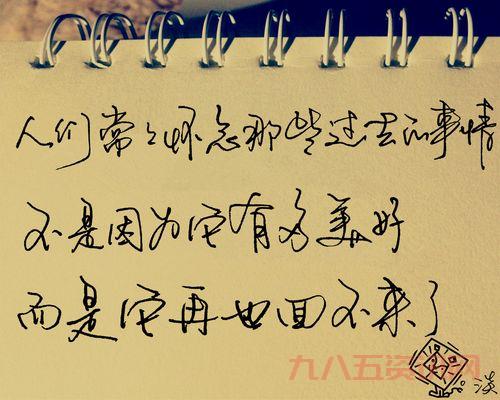 人们常常怀念那些过去的事情
不是因为它有多美好
而是它再也回不来了
九八五资源网
。淡